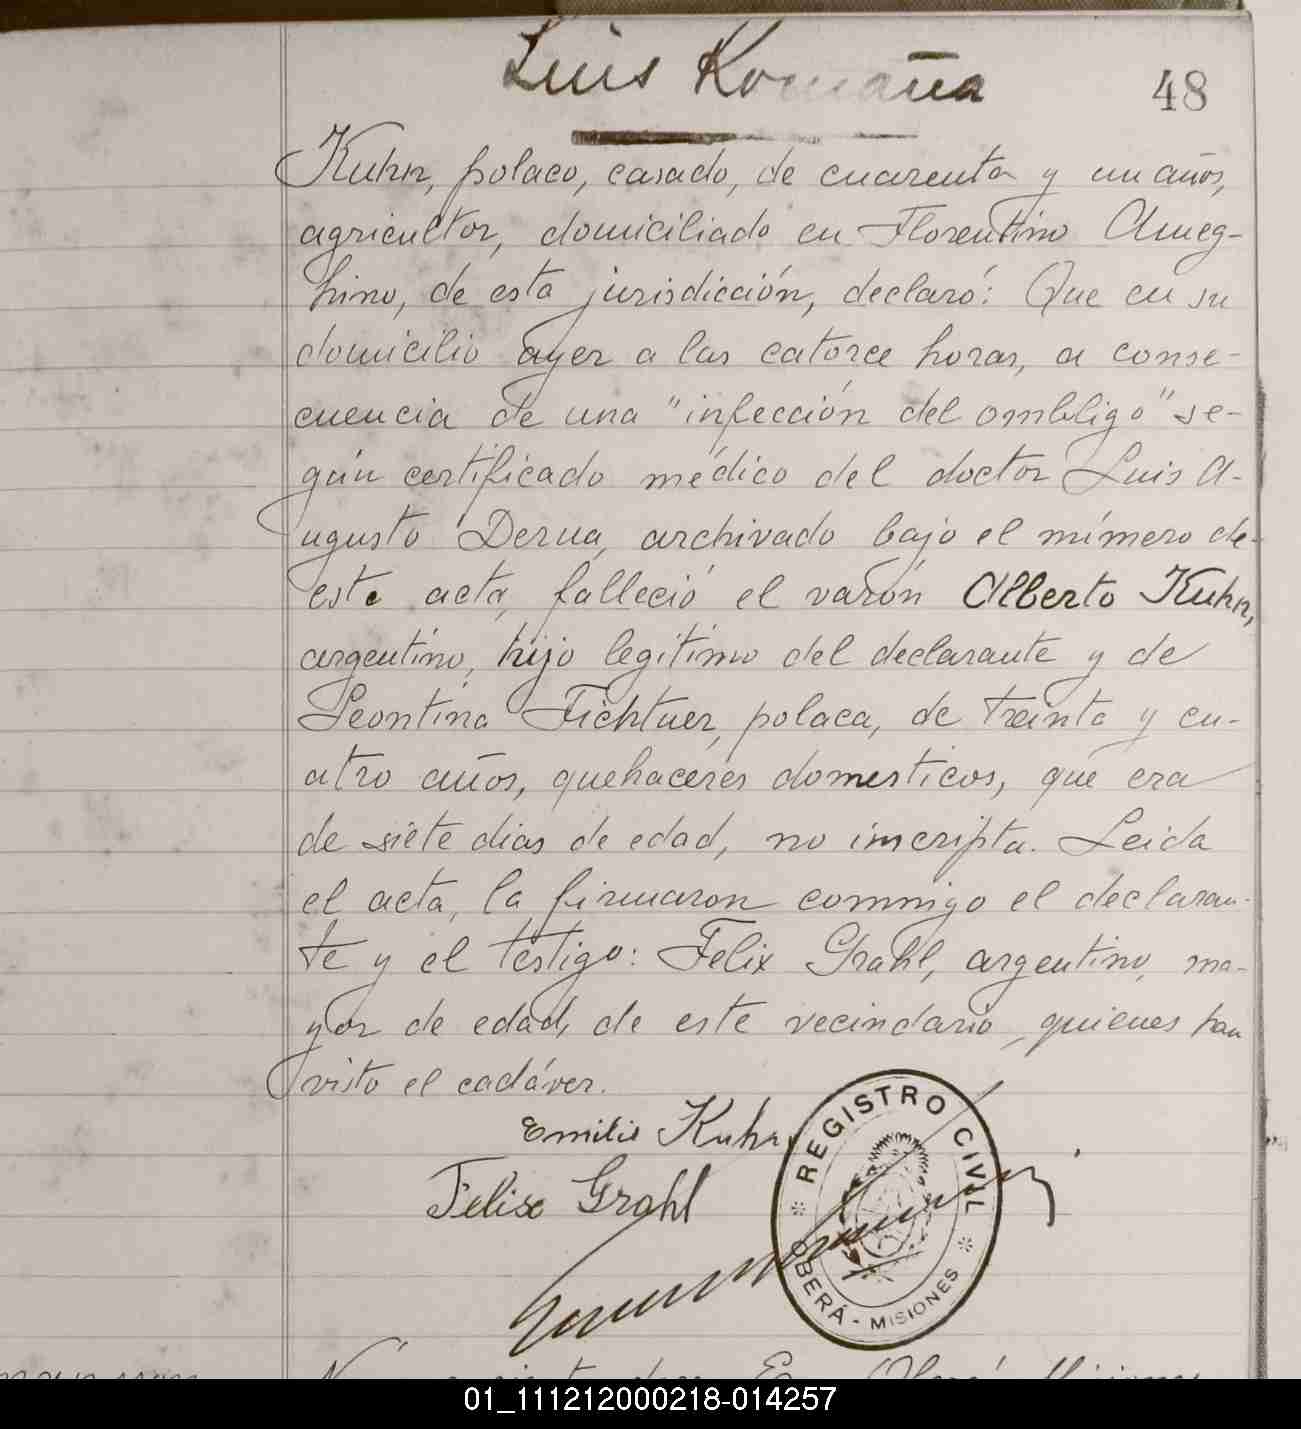 Luis Romaña
48
Kuhn, polaco, casado, de cuarenta y un años,
agricultor, domiciliado en Florentino Ameg-
hino, de esta jurisdicción, declaró: Que en su
domicilio ayer a las catorce horas, a conse-
cuencia de una "infección del ombligo" se-
gún certificado médico del doctor Luis A-
ugusto Derna, archivado bajo el número de
este acta, falleció el varón Alberto Kuhn,
argentino, hijo legítimo del declarante y de
Leontina Fichtner, polaca, de treinta y cu-
atro años, quehaceres domesticos, que era
de siete dias de edad, no inscripta. Leida
el acta, la firmaron conmigo el declaran-
te y el testigo: Felix Grahl, argentino, ma-
yor de edad, de este vecindario, quienes han
visto el cadáver.
Emilio Kuhn
Felix Grahl
REGISTRO CIVIL
OBERÁ - MISIONES
01_111212000218-014257